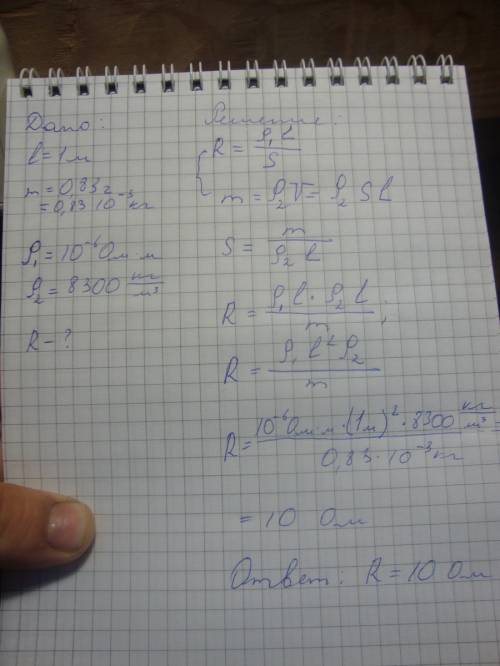 Дано:
l = 1 м
m = 0,83 г
= 0,83 10⁻³ кг
ρ₁ = 10⁻⁶ Ом м
ρ₂ = 8300 кг/м³
R - ?
Решение:
R = ρ₁ l / S
m = ρ₂ V = ρ₂ S l
S = m / ρ₂ l
R = ρ₁ l · ρ₂ l / m ;
R = ρ₁ l² ρ₂ / m
R = 10⁻⁶ Ом м · (1м)² · 8300 кг/м³ / 0,83 · 10⁻³ кг =
= 10 Ом
Ответ: R = 10 Ом